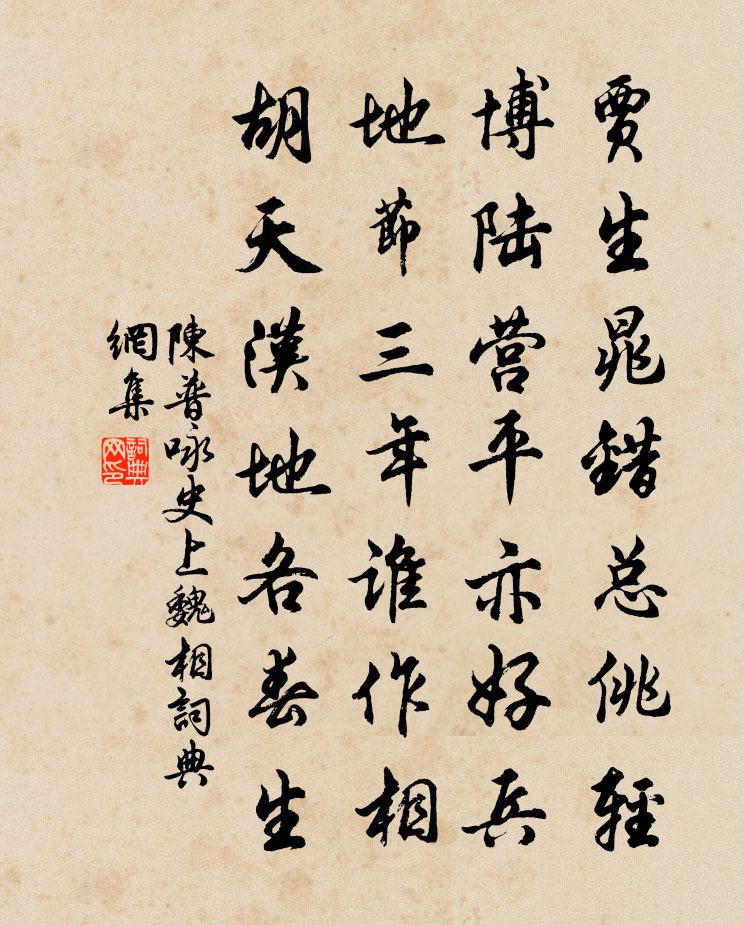 賈生晁錯总佻輕
博陆营平亦好兵
地節三年誰作相
胡天漢地各春生
陳普咏史上魏相詞典
網集
詞典網印